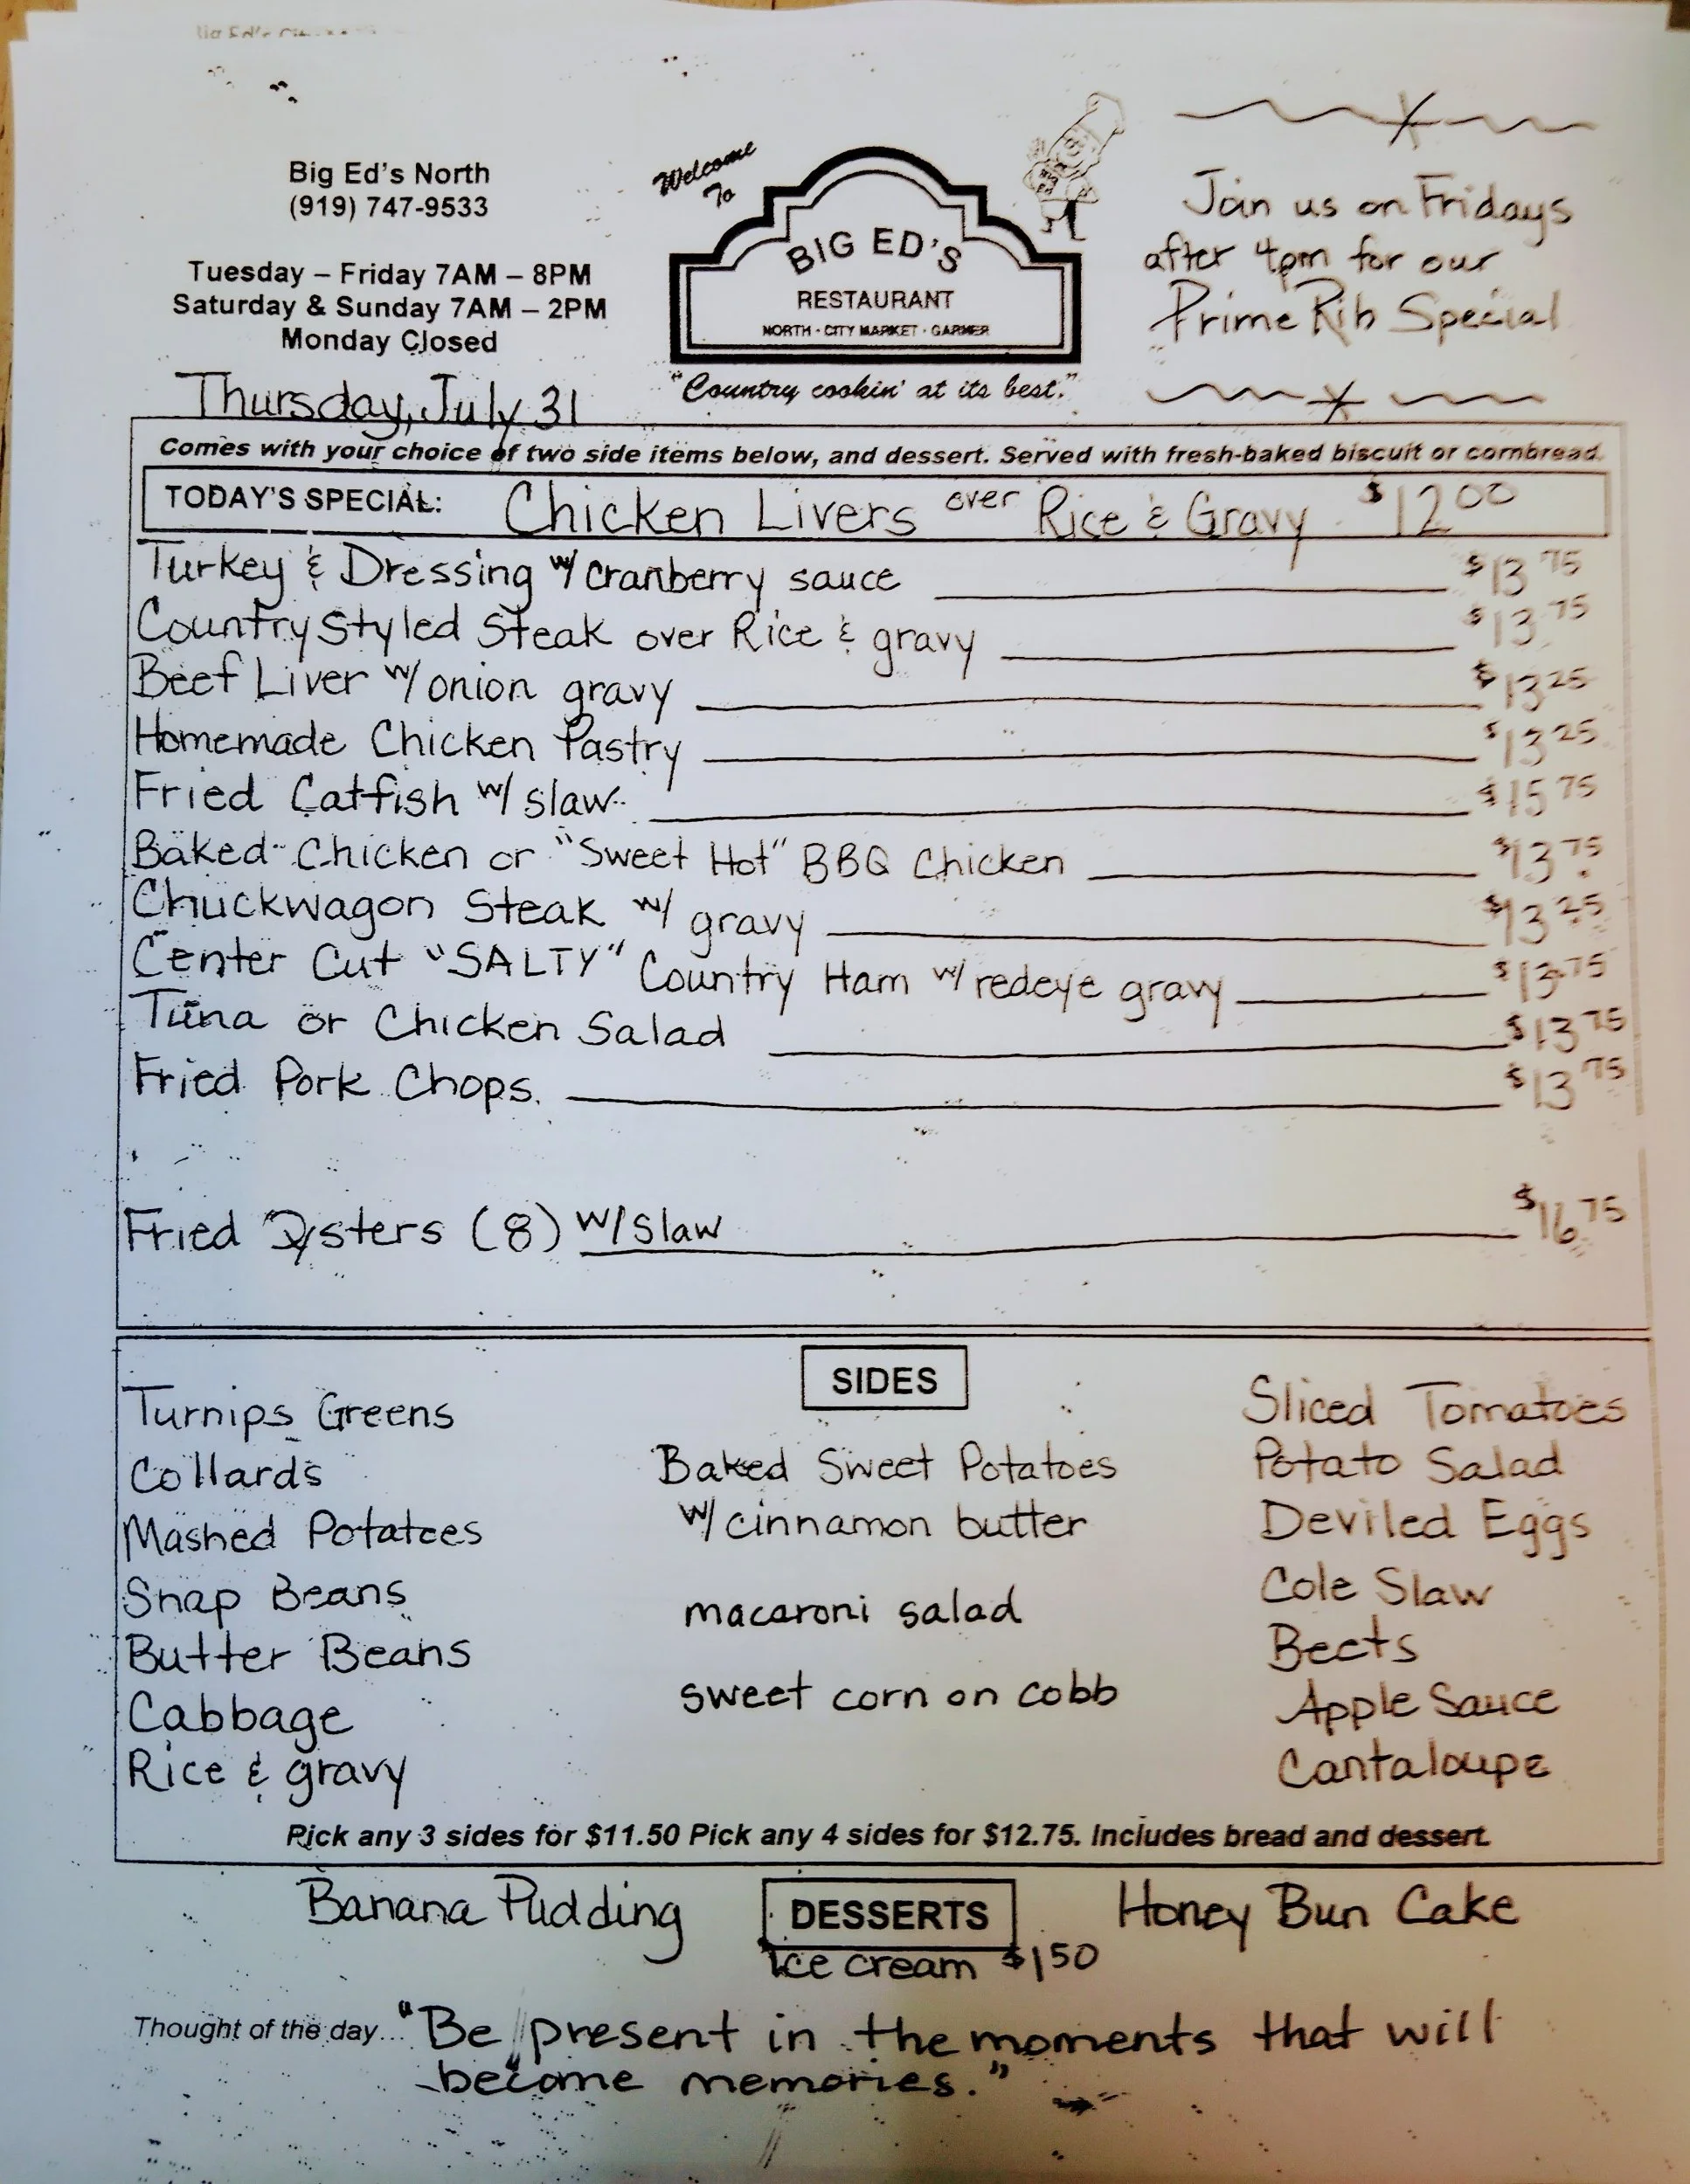 Big Ed's North
(919) 747-9533
Tuesday – Friday 7AM – 8PM
Saturday & Sunday 7AM – 2PM
Monday Closed
Welcome
To
BIG ED'S
RESTAURANT
NORTH · CITY MARKET · GARNER
"Country cookin' at its best."
Join us on Fridays
after 4pm for our
Prime Rib Special
Thursday, July 31
Comes with your choice of two side items below, and dessert. Served with fresh-baked biscuit or cornbread.
TODAY'S SPECIAL: Chicken Livers over Rice & Gravy $12 00
Turkey & Dressing w/ cranberry sauce $13 75
Country Styled Steak over Rice & gravy $13 75
Beef Liver w/ onion gravy $13 25
Homemade Chicken Pastry $13 25
Fried Catfish w/ slaw $15 75
Baked Chicken or "Sweet Hot" BBQ Chicken $13 75
Chuckwagon Steak w/ gravy $13 25
Center Cut "SALTY" Country Ham w/ redeye gravy $13 75
Tuna or Chicken Salad $13 75
Fried Pork Chops $13 75
Fried Oysters (8) w/ Slaw $16 75
SIDES
Turnips Greens
Collards
Mashed Potatoes
Snap Beans
Butter Beans
Cabbage
Rice & gravy
Baked Sweet Potatoes
w/ cinnamon butter
macaroni salad
sweet corn on cobb
Sliced Tomatoes
Potato Salad
Deviled Eggs
Cole Slaw
Beets
Apple Sauce
Cantaloupe
Pick any 3 sides for $11.50 Pick any 4 sides for $12.75. Includes bread and dessert.
Banana Pudding
DESSERTS
Honey Bun Cake
Ice cream $1 50
Thought of the day... "Be present in the moments that will
become memories."